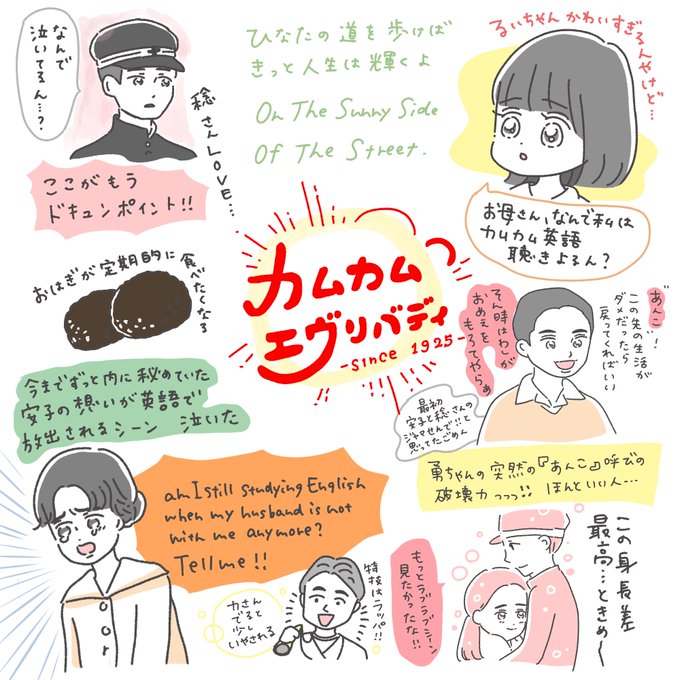 なんで
泣いてるん…?
稔さんLOVE…
ここがもう
ドキュンポイント!!
ひなたの道を歩けば
きっと人生は輝くよ
On The Sunny Side
Of The Street.
るいちゃんかわいすぎるんやけど…
お母さん、なんで私は
カムカム英語
聴きよるん?
おはぎが定期的に食べたくなる
カムカム
エヴリバディ
-since 1925-
あんこ!
この先の生活が
ダメだったら
戻ってくればいい
そん時はわしが
おめえを
もろてやらぁ
最初
安子と稔さんの
ジャマせんで!!と
思ってたごめん
今までずっと内に秘めていた
安子の想いが英語で
放出されるシーン 泣いた
勇ちゃんの突然の『あんこ』呼びの
破壊力っっっ!! ほんといい人…
am I still studying English
when my husband is not
with me anymore?
Tell me!!
特技はラッパ!!
力さん
でると
少し
いやされる
もっとラブラブシーン
見たかったな!!
この身長差
最高…ときめ〜